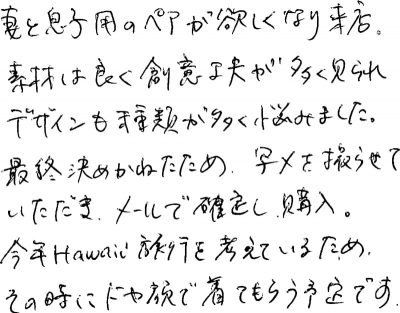 妻と息子用のペアが欲しくなり来店。
素材は良く創意工夫が多く見られ
デザインも種類が多く悩みました。
最終決めかねたため、写メを撮らせて
いただき、メールで確定し購入。
今年Hawaii旅行を考えているため、
その時にドヤ顔で着てもらう予定です。